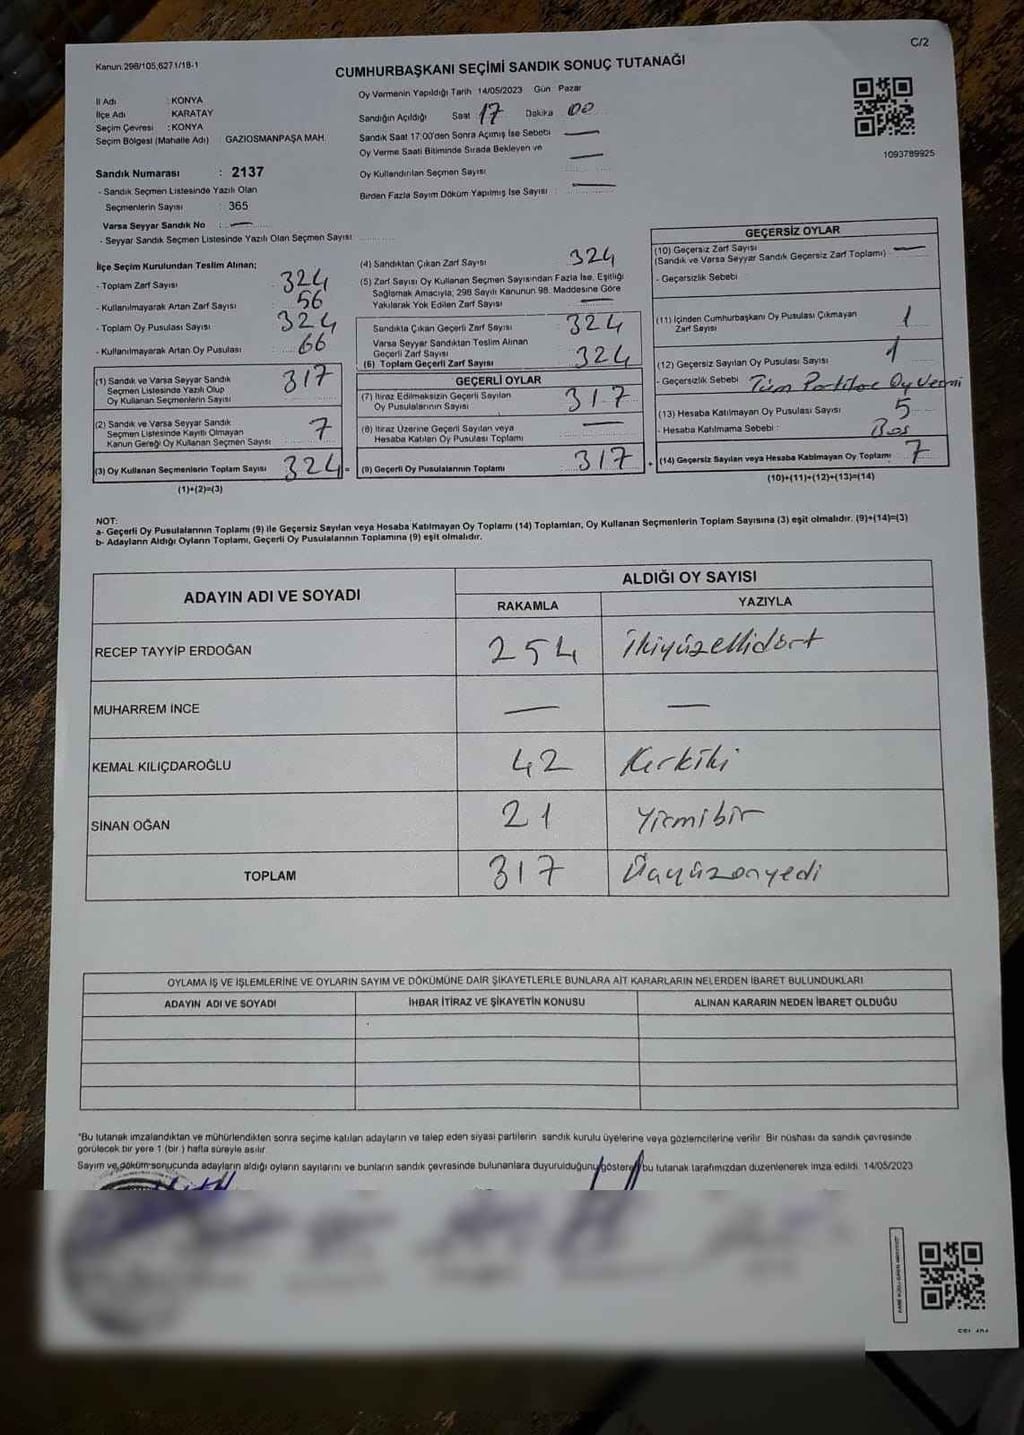 C/2
Kanun.298/105,627 1/18-1
CUMHURBAŞKANI SEÇİMİ SANDIK SONUÇ TUTANAĞI
İl Adı : KONYA
İlçe Adı : KARATAY
Seçim Çevresi : KONYA
Seçim Bölgesi (Mahalle Adı) : GAZİOSMANPAŞA MAH.
Sandık Numarası : 2137
- Sandık Seçmen Listesinde Yazılı Olan
Seçmenlerin Sayısı : 365
Varsa Seyyar Sandık No : —
- Seyyar Sandık Seçmen Listesinde Yazılı Olan Seçmen Sayısı
Oy Vermenin Yapıldığı Tarih 14/05/2023 Gün Pazar
Sandığın Açıldığı Saat 17 Dakika 00
Sandık Saat 17:00'den Sonra Açımış İse Sebebi —
Oy Verme Saati Bitiminde Sırada Bekleyen ve
Oy Kullandırılan Seçmen Sayısı —
Birden Fazla Sayım Döküm Yapılmış İse Sayısı : —
1093789925
İlçe Seçim Kurulundan Teslim Alınan;
- Toplam Zarf Sayısı 324
- Kullanılmayarak Artan Zarf Sayısı 56
- Toplam Oy Pusulası Sayısı 324
- Kullanılmayarak Artan Oy Pusulası 66
(1) Sandık ve Varsa Seyyar Sandık
Seçmen Listesinde Yazılı Olup
Oy Kullanan Seçmenlerin Sayısı 317
(2) Sandık ve Varsa Seyyar Sandık
Seçmen Listesinde Kayıtlı Olmayan
Kanun Gereği Oy Kullanan Seçmen Sayısı 7
(3) Oy Kullanan Seçmenlerin Toplam Sayısı 324
(1)+(2)=(3)
(4) Sandıktan Çıkan Zarf Sayısı 324
(5) Zarf Sayısı Oy Kullanan Seçmen Sayısından Fazla İse, Eşitliği
Sağlamak Amacıyla, 298 Sayılı Kanunun 98. Maddesine Göre
Yakılarak Yok Edilen Zarf Sayısı —
Sandıkta Çıkan Geçerli Zarf Sayısı 324
Varsa Seyyar Sandıktan Teslim Alınan
Geçerli Zarf Sayısı
(6) Toplam Geçerli Zarf Sayısı 324
GEÇERLİ OYLAR
(7) İtiraz Edilmeksizin Geçerli Sayılan
Oy Pusulalarının Sayısı 317
(8) İtiraz Üzerine Geçerli Sayılan veya
Hesaba Katılan Oy Pusulası Toplamı —
(9) Geçerli Oy Pusulalarının Toplamı 317
GEÇERSİZ OYLAR
(10) Geçersiz Zarf Sayısı
(Sandık ve Varsa Seyyar Sandık Geçersiz Zarf Toplamı) —
- Geçersizlik Sebebi
(11) İçinden Cumhurbaşkanı Oy Pusulası Çıkmayan
Zarf Sayısı 1
(12) Geçersiz Sayılan Oy Pusulası Sayısı 1
- Geçersizlik Sebebi Tüm Partilere Oy Vermi
(13) Hesaba Katılmayan Oy Pusulası Sayısı 5
- Hesaba Katılmama Sebebi : Boş
(14) Geçersiz Sayılan veya Hesaba Katılmayan Oy Toplamı 7
(10)+(11)+(12)+(13)=(14)
NOT:
a- Geçerli Oy Pusulalarının Toplamı (9) ile Geçersiz Sayılan veya Hesaba Katılmayan Oy Toplamı (14) Toplamları, Oy Kullanan Seçmenlerin Toplam Sayısına (3) eşit olmalıdır. (9)+(14)=(3)
b- Adayların Aldığı Oyların Toplamı, Geçerli Oy Pusulalarının Toplamına (9) eşit olmalıdır.
ADAYIN ADI VE SOYADI
ALDIĞI OY SAYISI
RAKAMLA YAZIYLA
RECEP TAYYİP ERDOĞAN 254 İkiyüzellidört
MUHARREM İNCE — —
KEMAL KILIÇDAROĞLU 42 Kırkiki
SİNAN OĞAN 21 Yirmibir
TOPLAM 317 Üçyüzonyedi
OYLAMA İŞ VE İŞLEMLERİNE VE OYLARIN SAYIM VE DÖKÜMÜNE DAİR ŞİKAYETLERLE BUNLARA AİT KARARLARIN NELERDEN İBARET BULUNDUKLARI
ADAYIN ADI VE SOYADI İHBAR İTİRAZ VE ŞİKAYETİN KONUSU ALINAN KARARIN NEDEN İBARET OLDUĞU
"Bu tutanak imzalandıktan ve mühürlendikten sonra seçime katılan adayların ve talep eden siyasi partilerin sandık kurulu üyelerine veya gözlemcilerine verilir. Bir nüshası da sandık çevresinde
görülecek bir yere 1 (bir) hafta süreyle asılır.
Sayım ve döküm sonucunda adayların aldığı oyların sayılarını ve bunların sandık çevresinde bulunanlara duyurulduğunu gösteren bu tutanak tarafımızdan düzenlenerek imza edildi. 14/05/2023